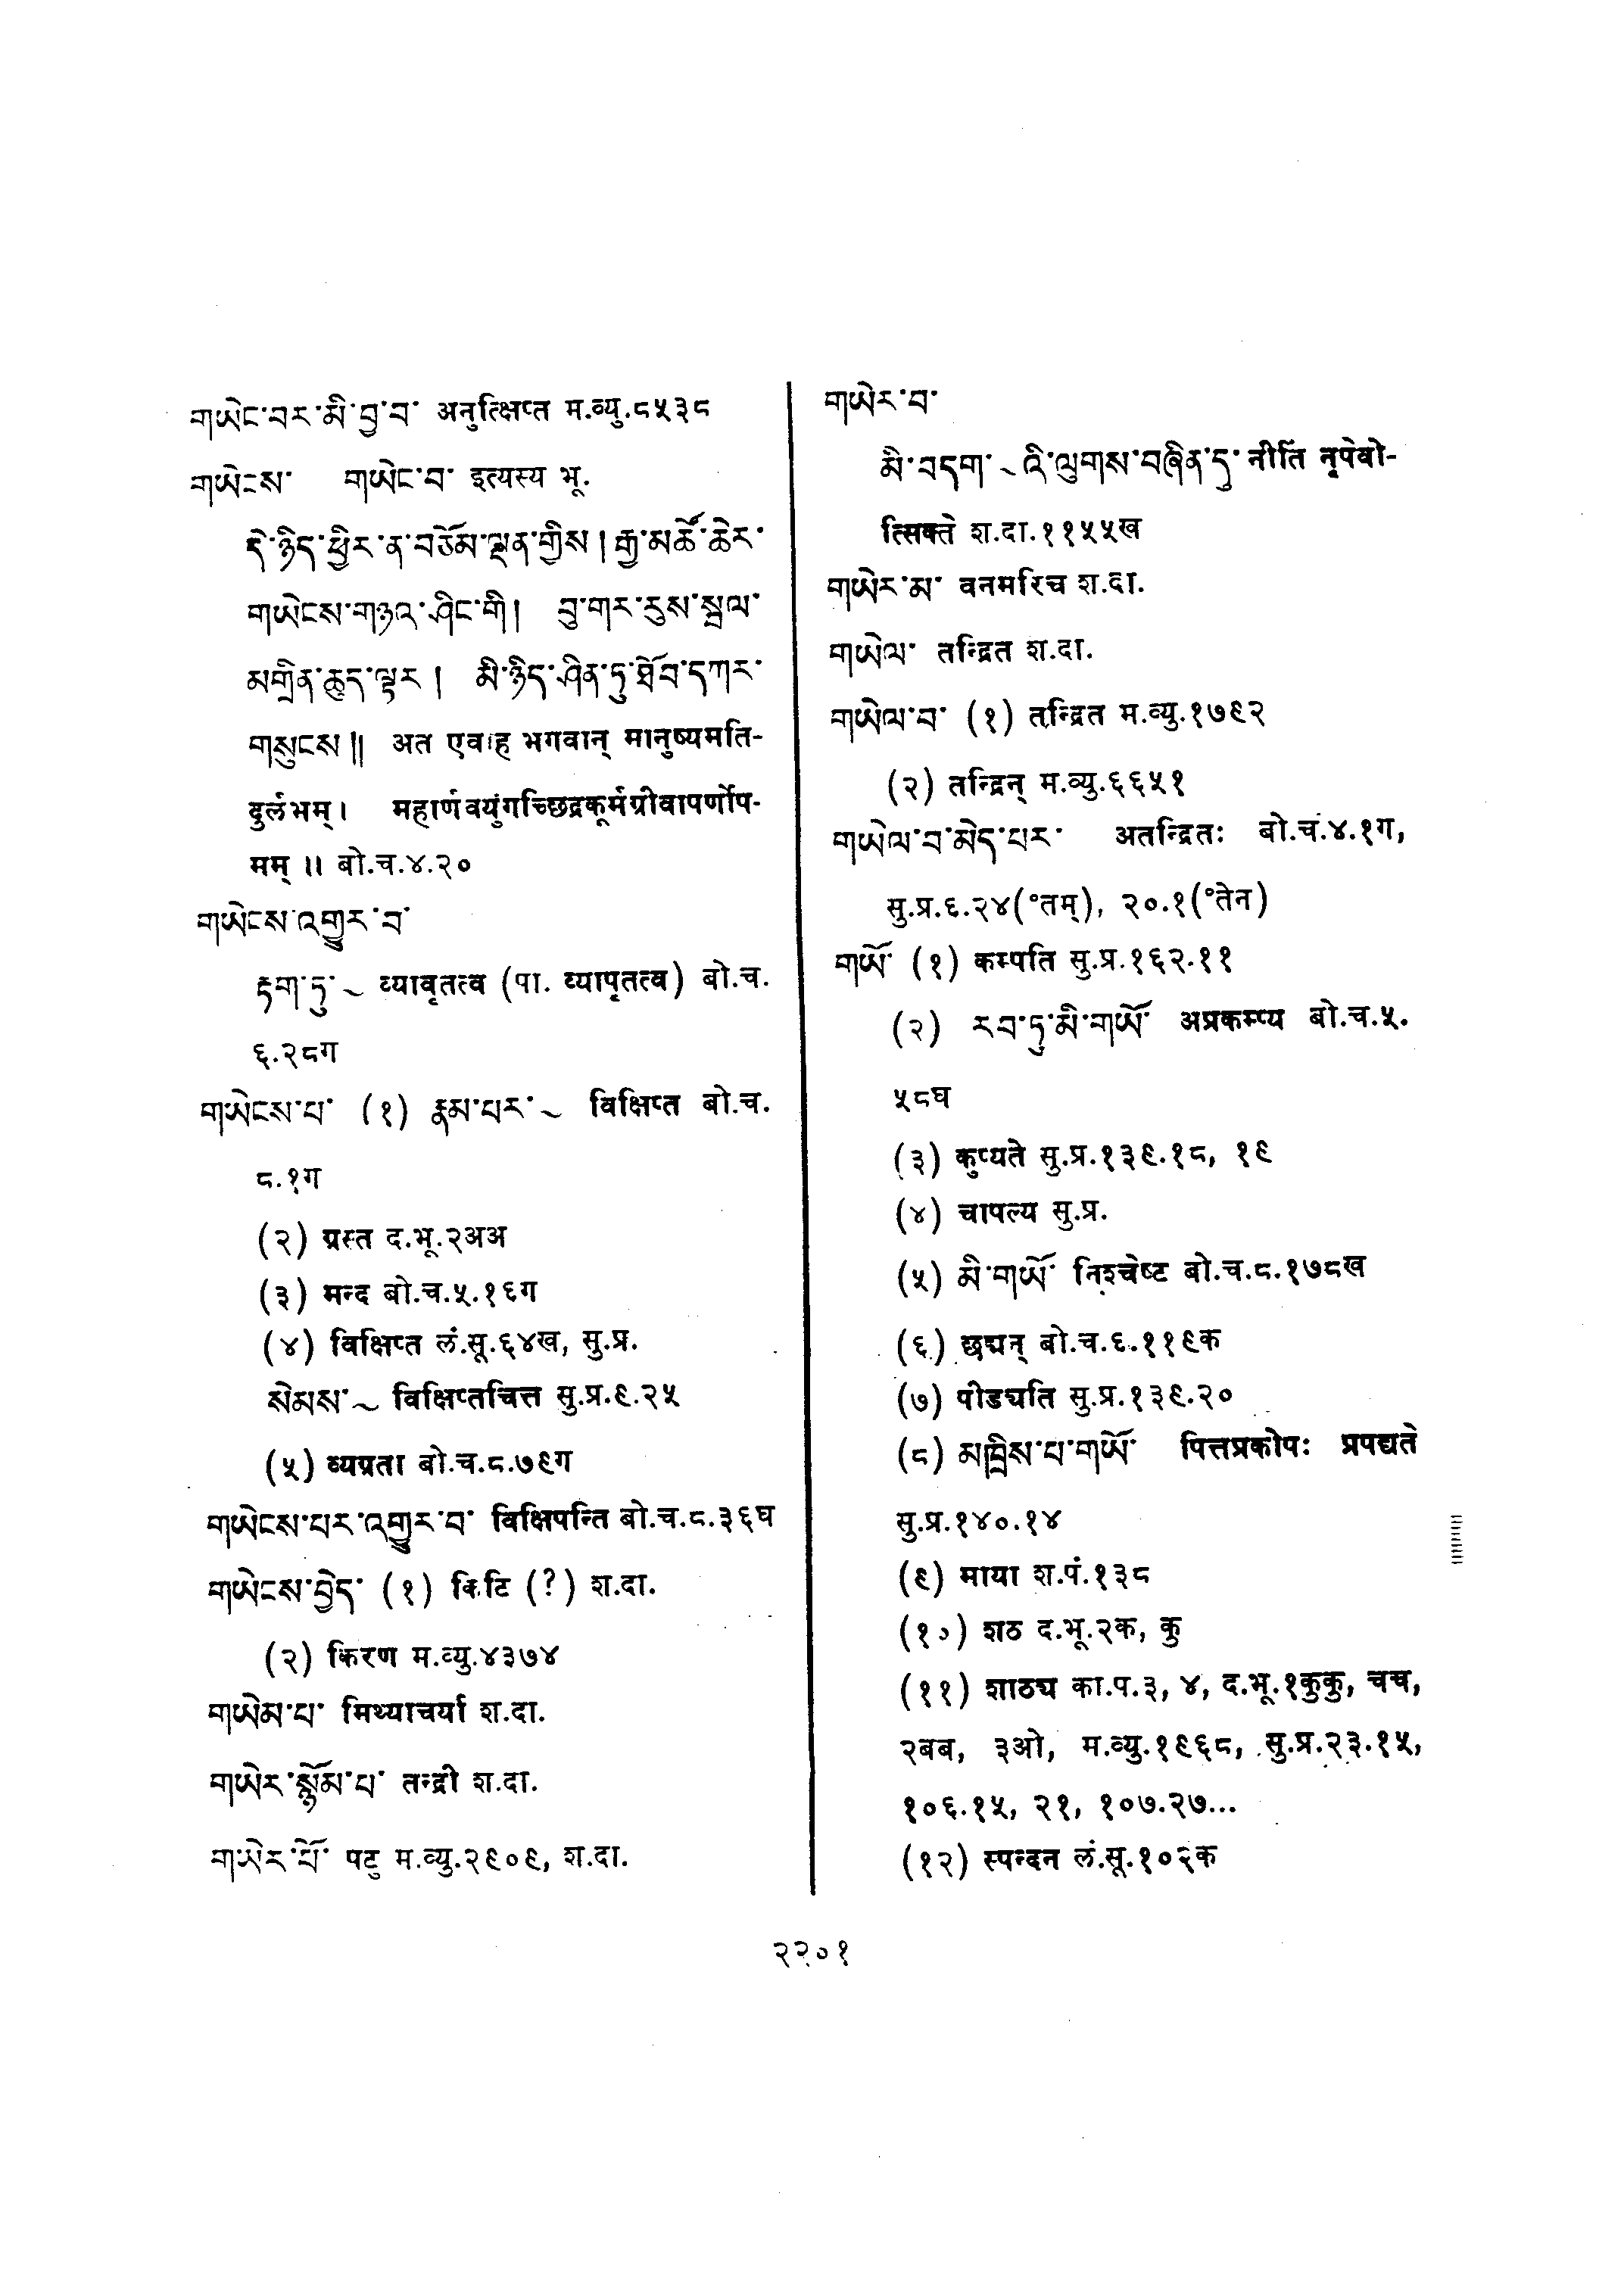 གཡེང་བར་མི་བྱ་བ་ अनुत्क्षिप्त म.व्यु.८५३८
གཡེངས་ གཡེང་བ་ इत्यस्य भू.
དེ་ཉིད་ཕྱིར་ན་བཅོམ་ལྡན་གྱིས། རྒྱ་མཚོ་ཆེར་
གཡེངས་གཉའ་ཤིང་གི། བུ་གར་རུས་སྦལ་
མགྲིན་ཆུད་ལྟར། མི་ཉིད་ཤིན་ཏུ་ཐོབ་དཀར་
གསུངས༎ अत एवाह भगवान् मानुष्यमति-
दुर्लभम्। महार्णवयुंगच्छिद्रकूर्मग्रीवापर्णोप-
मम्॥ बो.च.४.२०
གཡེངས་འགྱུར་བ་
རྟག་ཏུ་ ~ व्यावृतत्व (पा. व्यापृतत्व) बो.च.
६.२८ग
གཡེངས་པ་ (१) རྣམ་པར་ ~ विक्षिप्त बो.च.
८.१ग
(२) ग्रस्त द.भू.२अअ
(३) मन्द बो.च.५.१६ग
(४) विक्षिप्त लं.सू.६४ख, सु.प्र.
སེམས་ ~ विक्षिप्तचित्त सु.प्र.९.२५
(५) व्यग्रता बो.च.८.७९ग
གཡེངས་པར་འགྱུར་བ་ विक्षिपन्ति बो.च.८.३६घ
གཡེངས་བྱེད་ (१) किटि (?) श.दा.
(२) किरण म.व्यु.४३७४
གཡེམ་པ་ मिथ्याचर्या श.दा.
གཡེར་སྙོམ་པ་ तन्द्री श.दा.
གཡེར་པོ་ पटु म.व्यु.२९०९, श.दा.
གཡེར་བ་
མི་བདག་ ~ འི་ལུགས་བཞིན་དུ་ नीति नृपेवो-
त्सिक्ते श.दा.११५५ख
གཡེར་མ་ वनमरिच श.दा.
གཡེལ་ तन्द्रित श.दा.
གཡེལ་བ་ (१) तन्द्रित म.व्यु.१७९२
(२) तन्द्रिन् म.व्यु.६६५१
གཡེལ་བ་མེད་པར་ अतन्द्रितः बो.च.४.१ग,
सु.प्र.६.२४(°तम्), २०.१(°तेन)
གཡོ་ (१) कम्पति सु.प्र.१६२.११
(२) རབ་ཏུ་མི་གཡོ་ अप्रकम्प्य बो.च.५.
५८घ
(३) कुप्यते सु.प्र.१३९.१८, १९
(४) चापल्य सु.प्र.
(५) མི་གཡོ་ निश्चेष्ट बो.च.८.१७८ख
(६) छद्मन् बो.च.६.११९क
(७) पीडयति सु.प्र.१३९.२०
(८) མཁྲིས་པ་གཡོ་ पित्तप्रकोपः प्रपद्यते
सु.प्र.१४०.१४
(९) माया श.पं.१३८
(१०) शठ द.भू.२क, कु
(११) शाठ्य का.प.३, ४, द.भू.१कुकु, चच,
२बब, ३ओ, म.व्यु.१९६८, सु.प्र.२३.१५,
१०६.१५, २१, १०७.२७...
(१२) स्पन्दन लं.सू.१०२क
२२०१